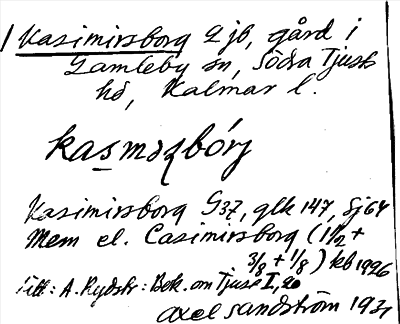 1 Kasimirsborg 2 jb, gård i
Gamleby sn, Södra Tjusts
hd, Kalmar l.
kasməʐbórj
Kasimirsborg G37, glk 147, Sj 64
Mem el. Casimirsborg (1 1/2 +
3/8 + 1/8) kb 1926
Litt: A. Rydstr: Bok. om Tjust I, 26
Axel Sandström 1931